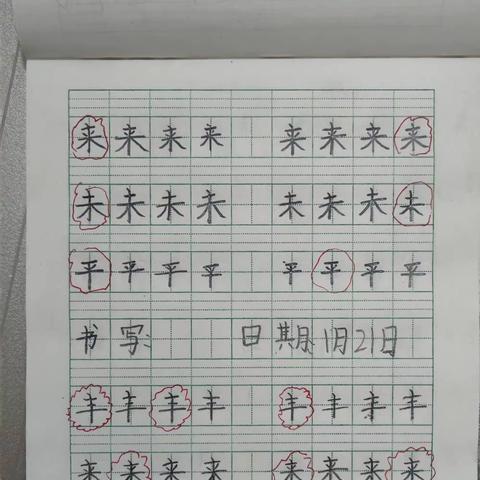 来来来来 来来来来
未未未未 未未未未
平平平平 平平平平
书写: 日期:1月21日
丰丰丰丰 丰丰丰丰
来来来来 来来来来